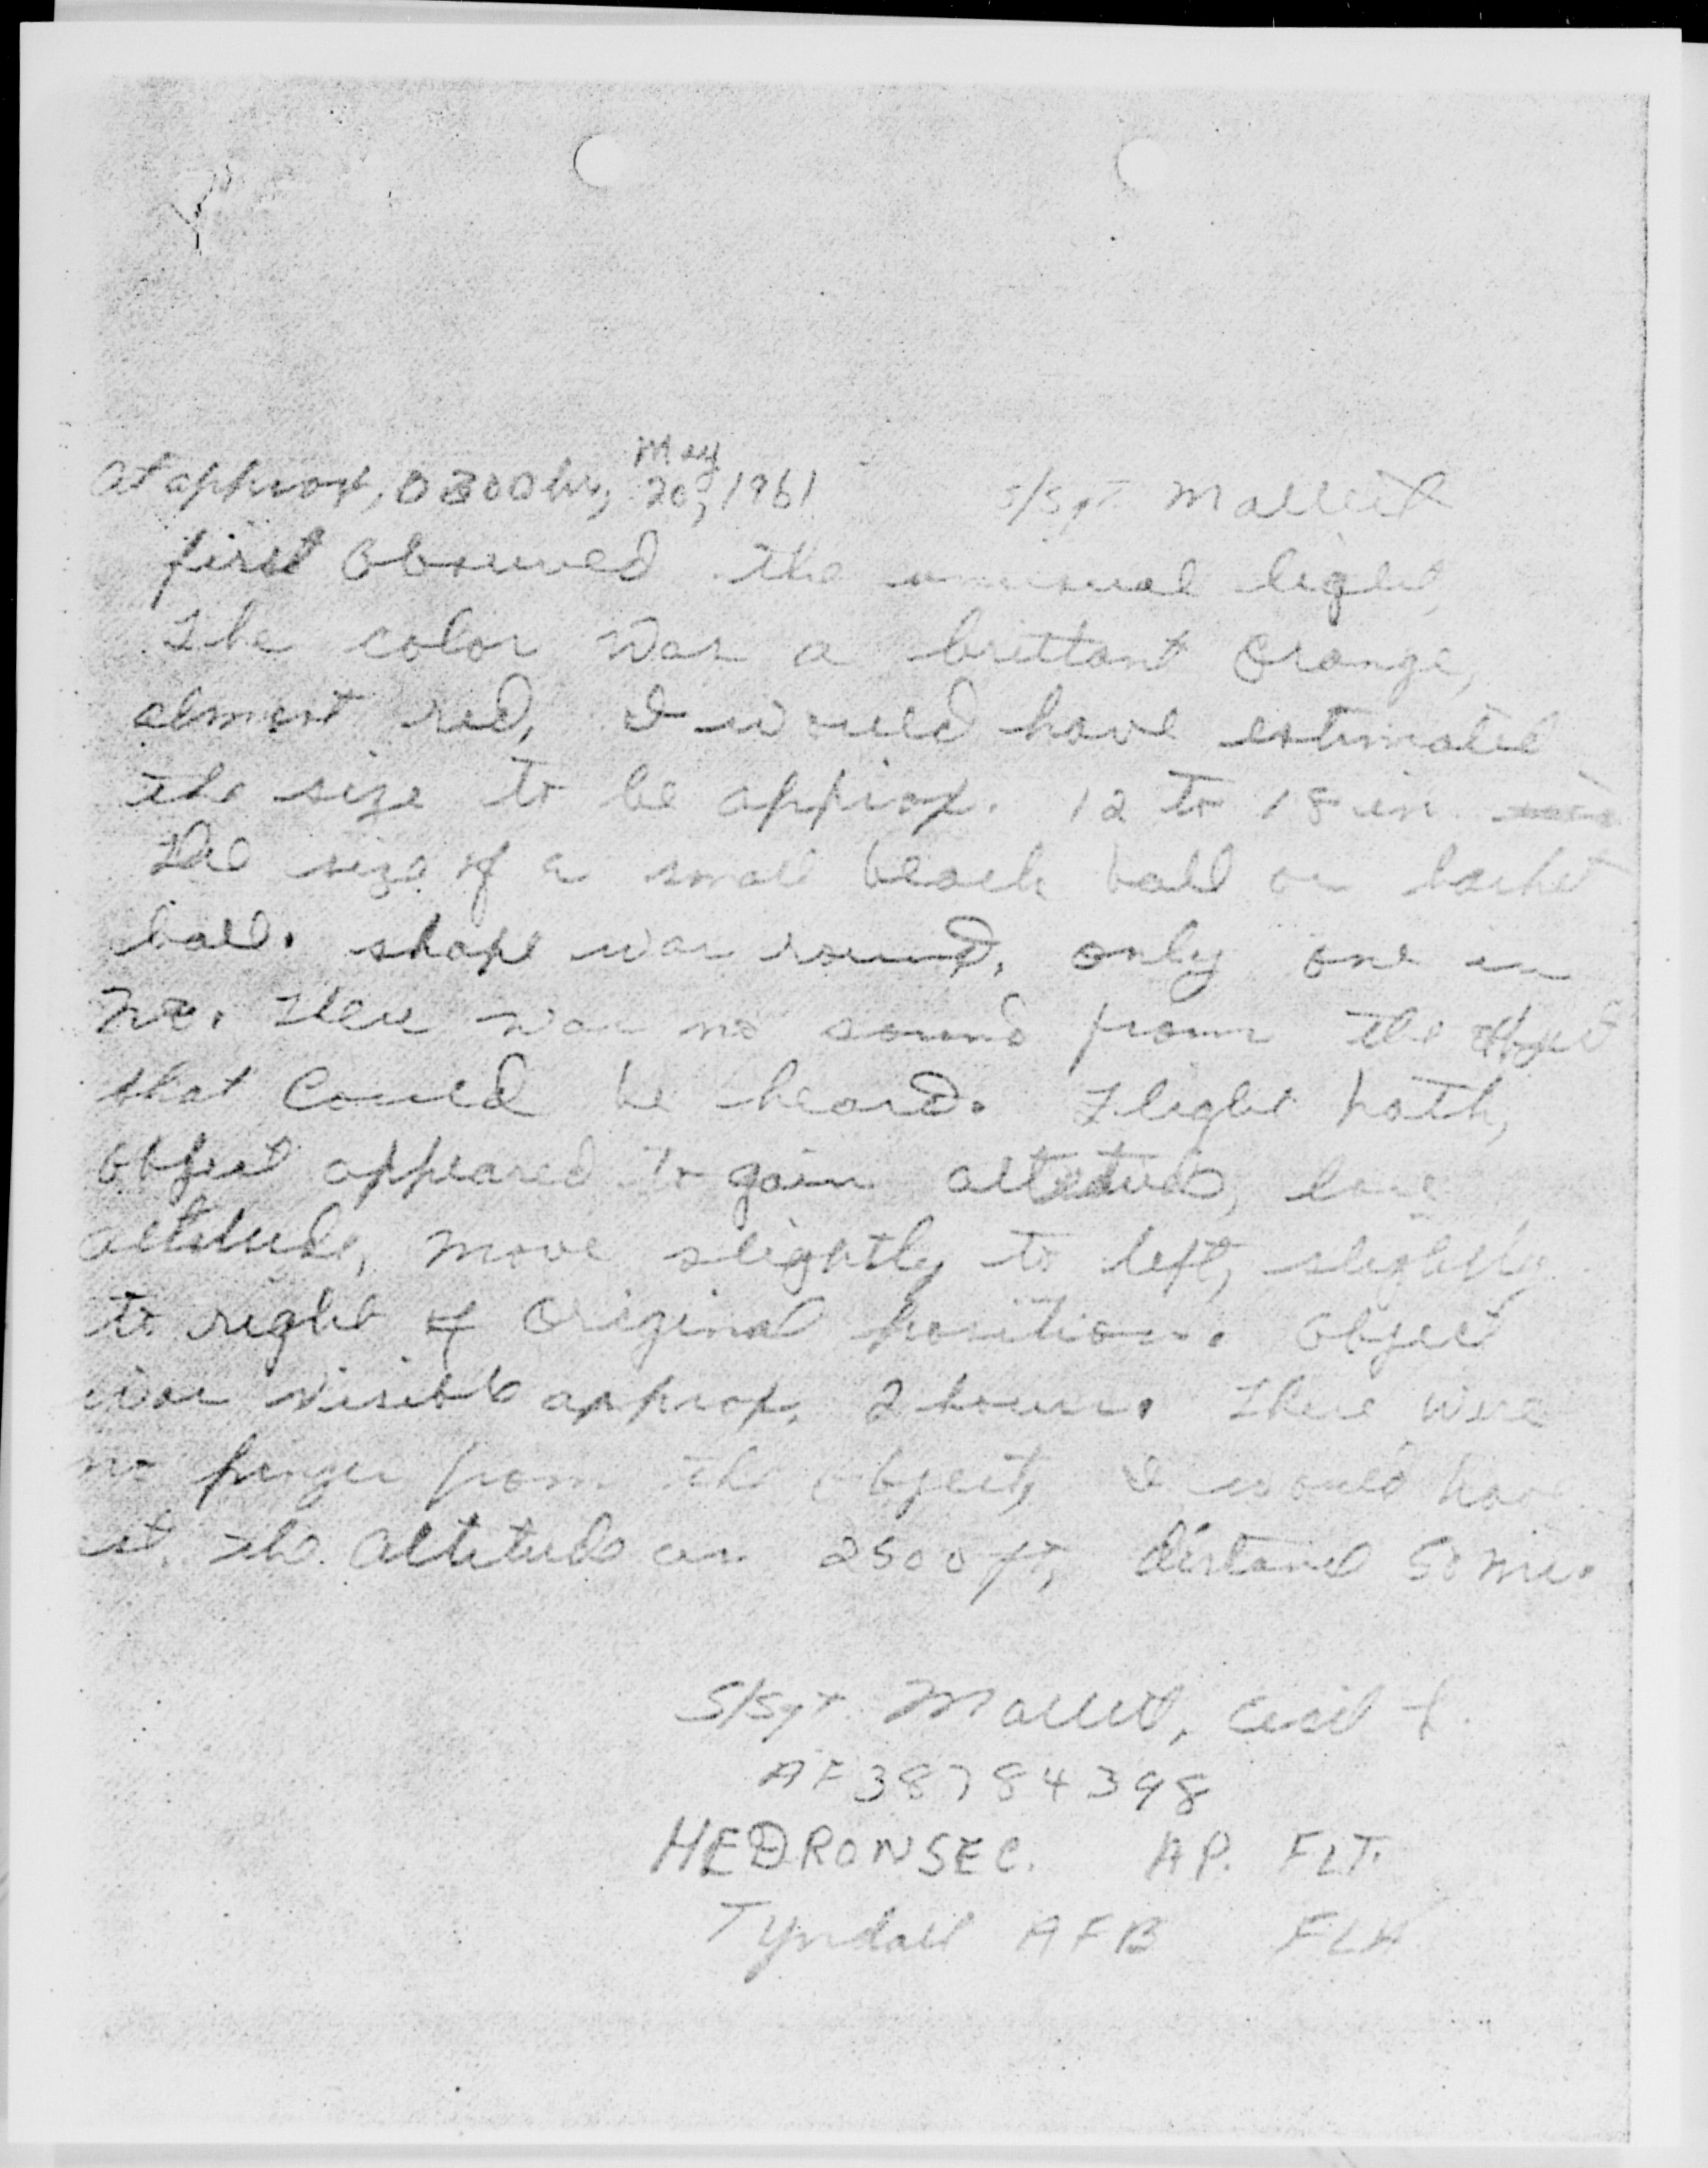 May
At approx, 0300 hr, 20, 1961 S/Sgt. Mallett
first observed the unusual light,
The color was a brittant orange,
almost red, I would have estimated
the size to be approx. 12 to 18 in.
The size of a small beach ball or basket
ball. shape was round, only one in
no. There was no sound from the object
that could be heard. Flight path,
object appeared to gain altitude, lose
altitude, move slightly to left, slightly
to right of original position. Object
was visible approx. 2 hours. There were
no from the object, I would have
est. the altitude as 2500 ft, distance 50 mi.
S/Sgt. Mallett, Cecil
AF38784398
HEDRONSEC. AP. FLT.
Tyndall AFB FLA